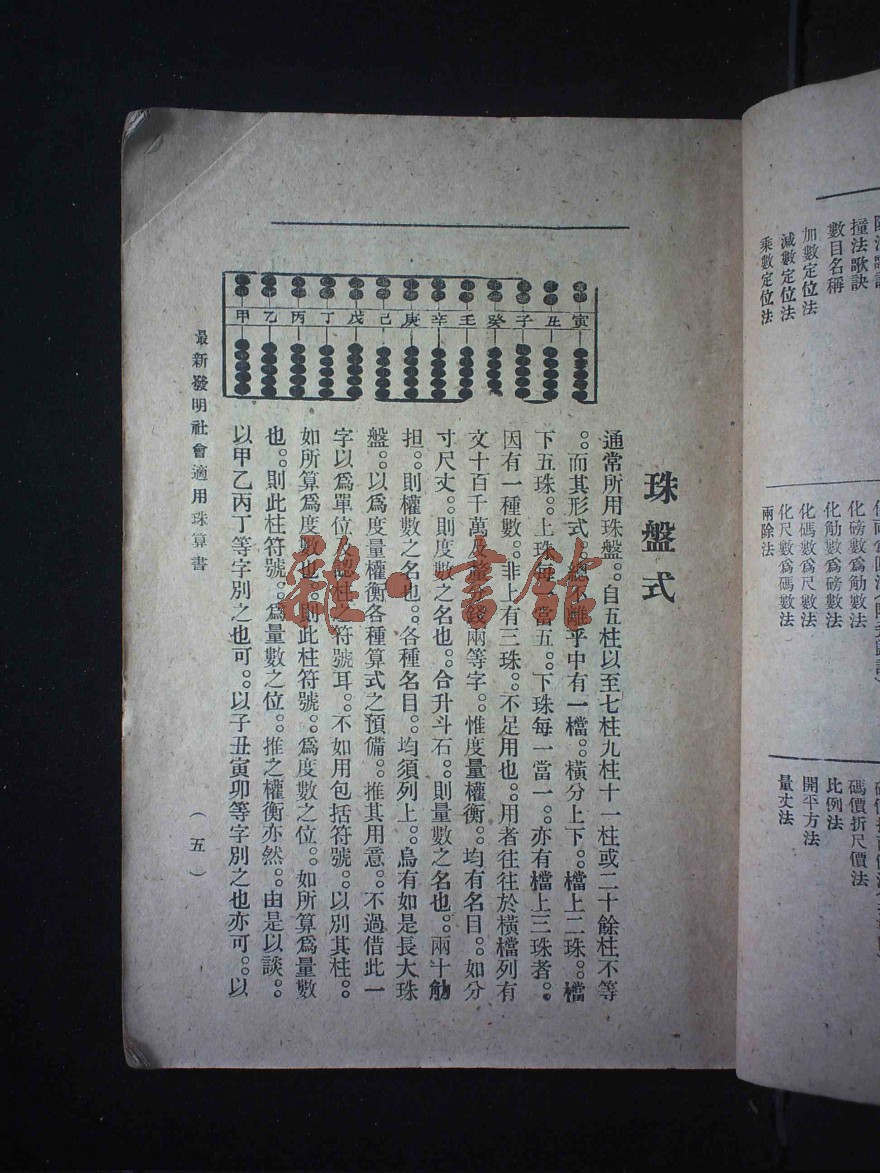 珠盤式
通常所用珠盤。。自五柱以至七柱九柱十一柱或二十餘柱不等
。。而其形式。。總不離乎中有一檔。。橫分上下。。檔上二珠。。檔
下五珠。。上珠每一當五。。下珠每一當一。。亦有檔上三珠者。。
因有一種數。。非上有三珠。。不足用也。。用者往往於橫檔列有
文十百千萬及釐分錢兩等字。。惟度量權衡。。均有名目。。如分
寸尺丈。。則度數之名也。。合升斗石。。則量數之名也。。兩十觔
担。。則權數之名也。。各種名目。。均須列上。。烏有如是長大珠
盤。。以爲度量權衡各種算式之預備。。推其用意。。不過借此一
字以爲單位及認柱之符號耳。。不如用包括符號。。以別其柱。。
如所算爲度數也。。則此柱符號。。爲度數之位。。如所算爲量數
也。。則此柱符號。。爲量數之位。。推之權衡亦然。。由是以談。。
以甲乙丙丁等字別之也可。。以子丑寅卯等字別之也亦可。。以
甲乙丙丁戊己庚辛壬癸子丑寅
最新發明社會適用珠算書
（五）
雜·書館
撞法歌訣
數目名稱
加數定位法
減數定位法
乘數定位法
化磅數爲觔數法
化觔數爲磅數法
化碼數爲尺數法
化尺數爲碼數法
兩除法
碼價折尺價法
比例法
開平方法
量丈法